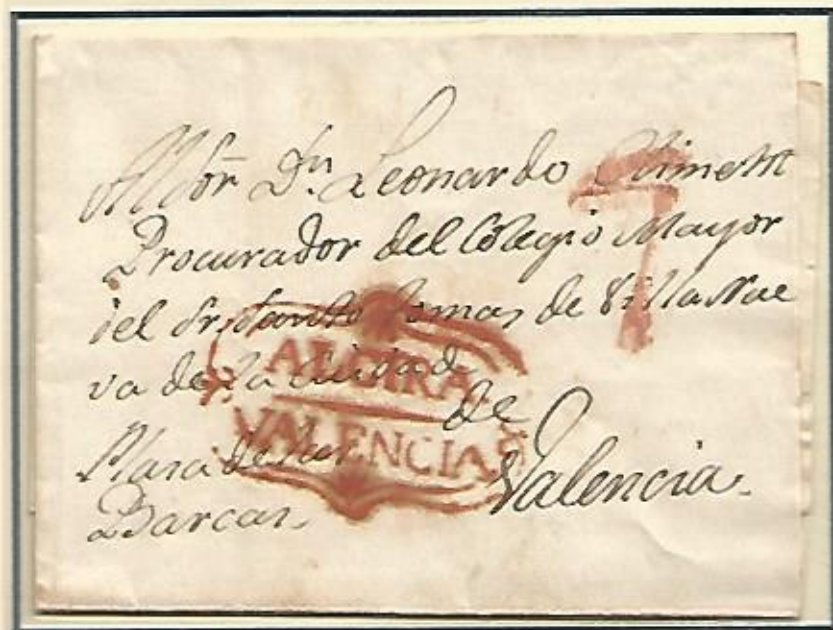 Al Sor Dn. Leonardo Climent
Procurador del Colegio Mayor
del Sr. Santo Tomas de Villa Nue
va de la Ciudad
de
Valencia.
Plasa de las
Barcas.
7
ALCIRA
VALENCIA